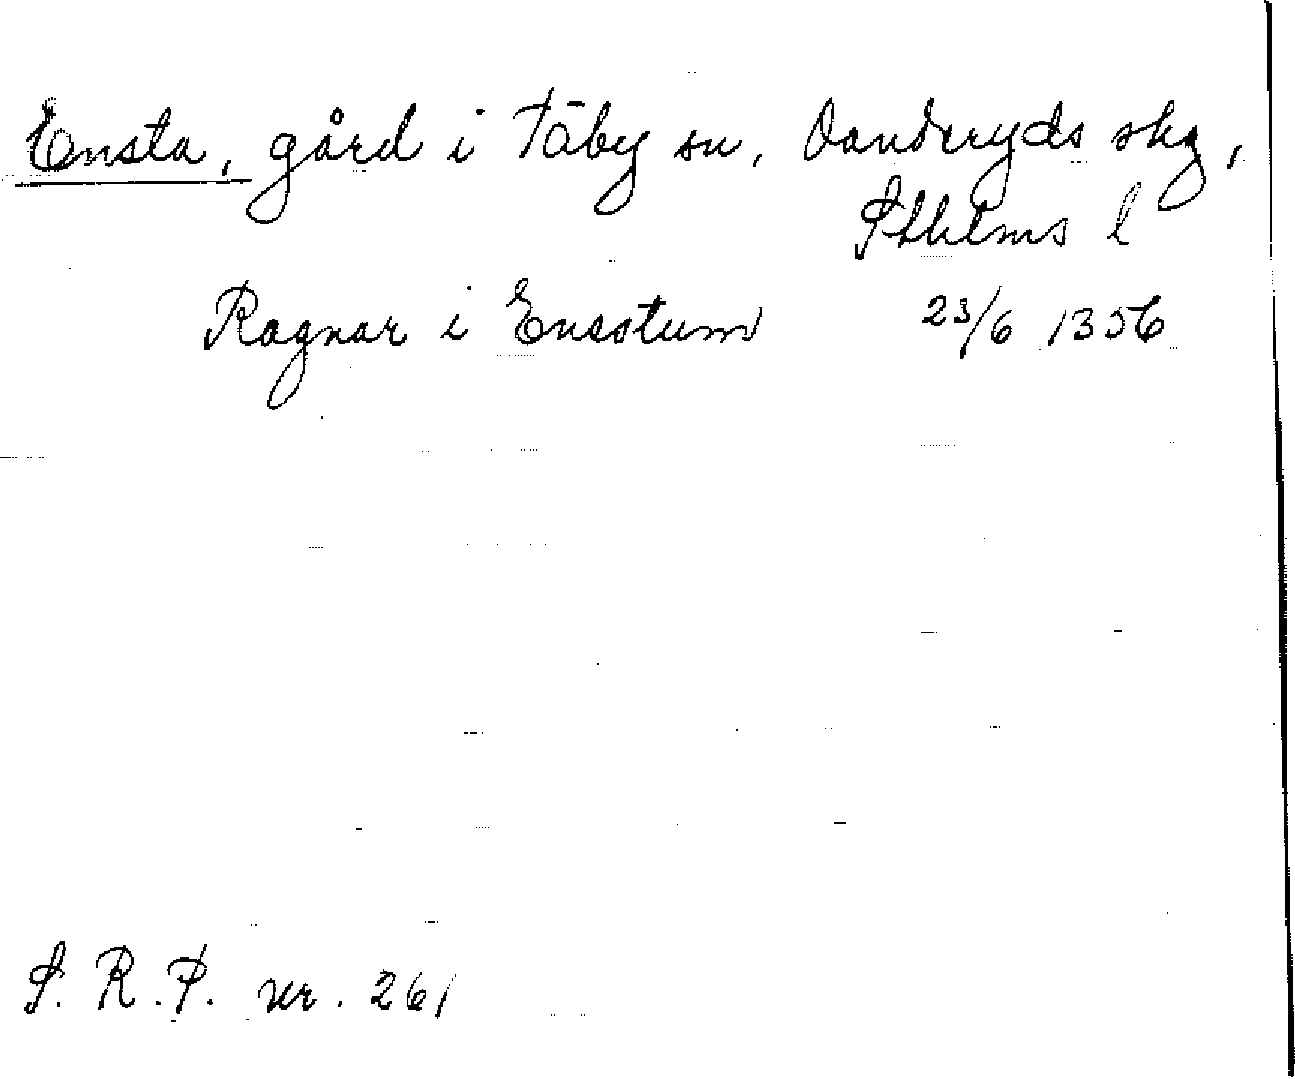 Ensta, gård i Täby sn, Danderyds skg,
Sthlms l
Ragnar i Ensstum 23/6 1356
S. R. P. nr. 261